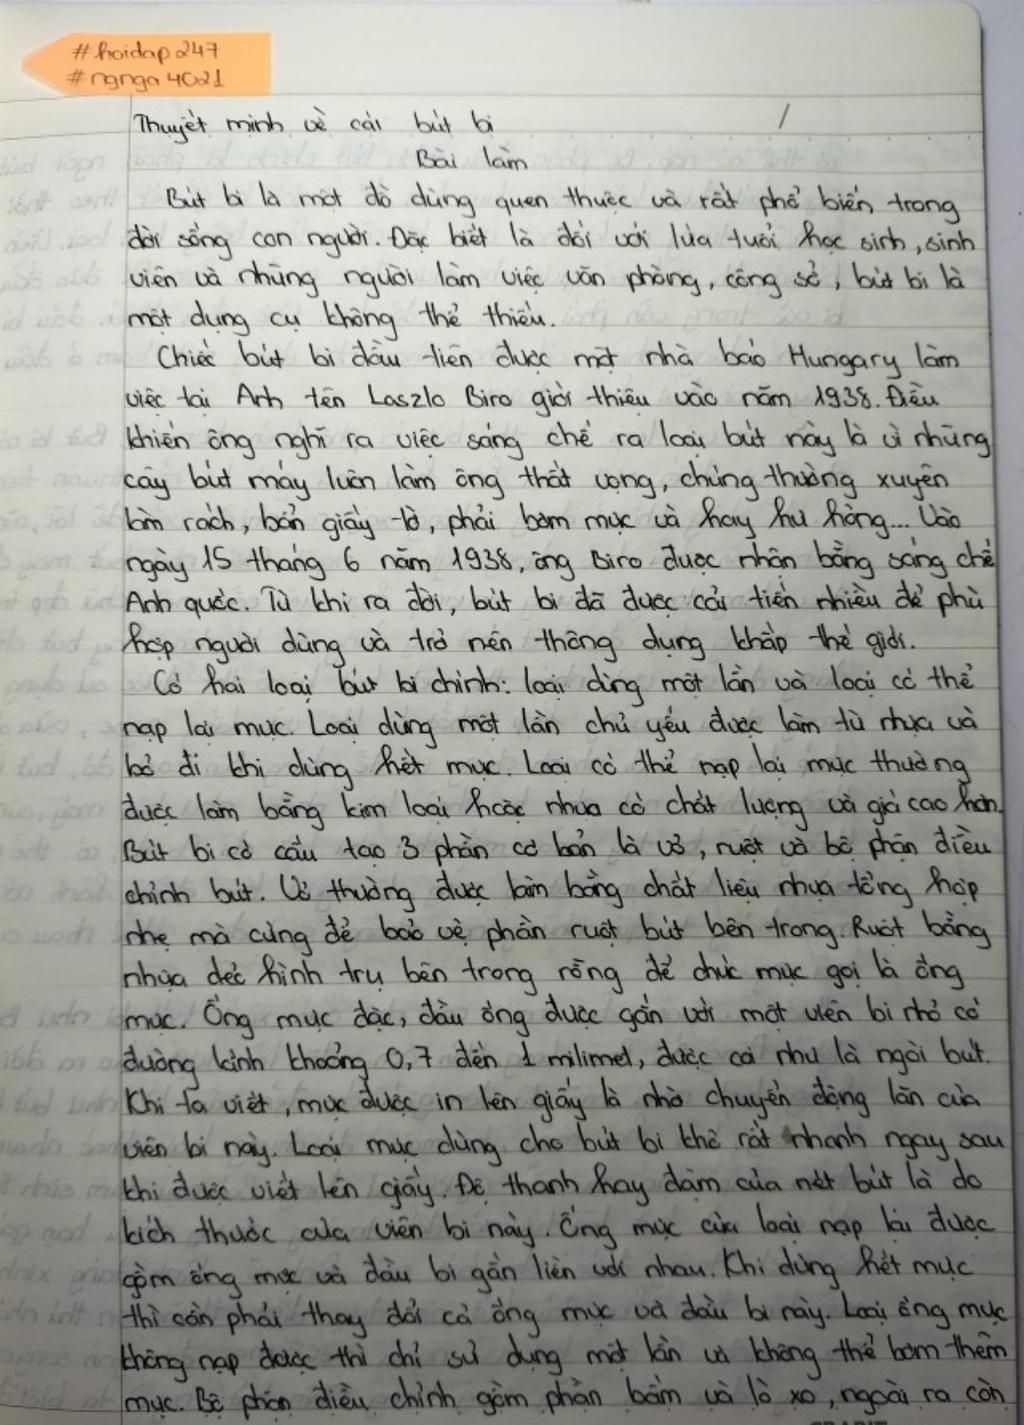 #hoidap247
#ngnga4021
Thuyết minh về cái bút bi
Bài làm
Bút bi là một đồ dùng quen thuộc và rất phổ biến trong
đời sống con người. Đặc biệt là đối với lứa tuổi học sinh, sinh
viên và những người làm việc văn phòng, công sở, bút bi là
một dụng cụ không thể thiếu.
Chiếc bút bi đầu tiên được một nhà báo Hungary làm
việc tại Anh tên Laszlo Biro giới thiệu vào năm 1938. Điều
khiến ông nghĩ ra việc sáng chế ra loại bút này là vì những
cây bút máy luôn làm ông thất vọng, chúng thường xuyên
làm rách, bẩn giấy tờ, phải bơm mực và hay hư hỏng... Vào
ngày 15 tháng 6 năm 1938, ông Biro được nhận bằng sáng chế
Anh quốc. Từ khi ra đời, bút bi đã được cải tiến nhiều để phù
hợp người dùng và trở nên thông dụng khắp thế giới.
Có hai loại bút bi chính: loại dùng một lần và loại có thể
nạp lại mực. Loại dùng một lần chủ yếu được làm từ nhựa và
bỏ đi khi dùng hết mực. Loại có thể nạp lại mực thường
được làm bằng kim loại hoặc nhựa có chất lượng và giá cao hơn.
Bút bi có cấu tạo 3 phần cơ bản là vỏ, ruột và bộ phận điều
chỉnh bút. Vỏ thường được làm bằng chất liệu nhựa tổng hợp
nhẹ mà cứng để bảo vệ phần ruột bút bên trong. Ruột bằng
nhựa dẻo hình trụ bên trong rỗng để chứa mực gọi là ống
mực. Ống mực đặc, đầu ống được gắn với một viên bi nhỏ có
đường kính khoảng 0,7 đến 1 milimet, được coi như là ngòi bút.
Khi ta viết, mực được in lên giấy là nhờ chuyển động lăn của
viên bi này. Loại mực dùng cho bút bi khô rất nhanh ngay sau
khi được viết lên giấy. Độ thanh hay đậm của nét bút là do
kích thước của viên bi này. Ống mực của loại nạp lại được
gồm ống mực và đầu bi gắn liền với nhau. Khi dùng hết mực
thì cần phải thay đổi cả ống mực và đầu bi này. Loại ống mực
không nạp được thì chỉ sử dụng một lần và không thể bơm thêm
mực. Bộ phận điều chỉnh gồm phần bấm và lò xo, ngoài ra còn